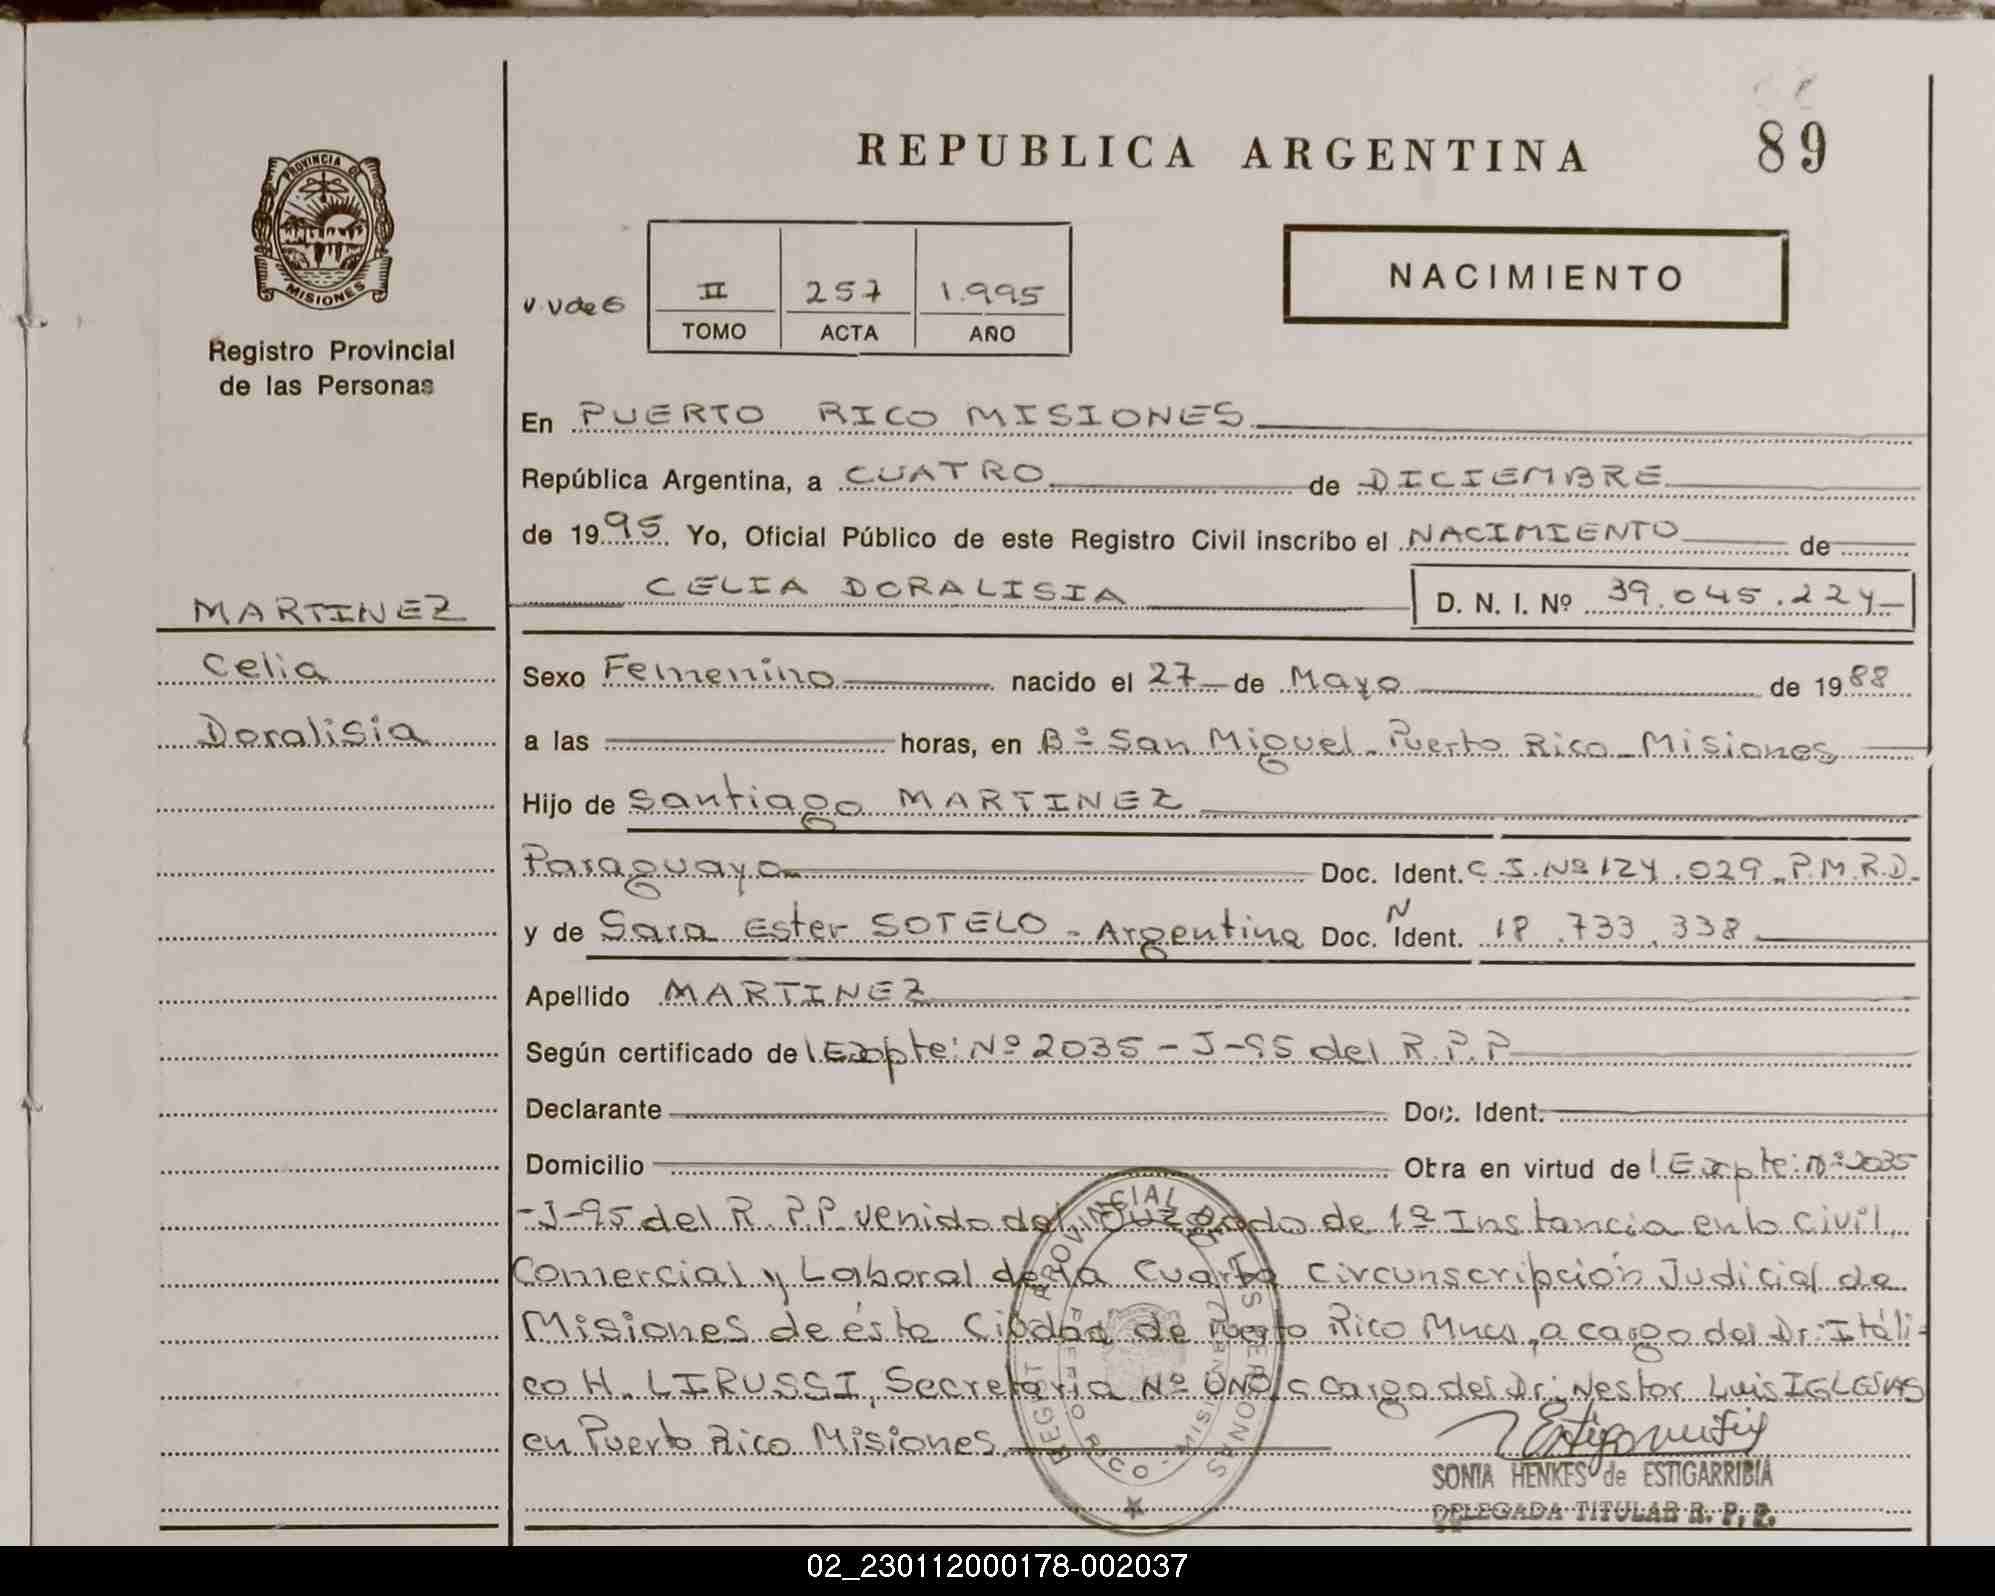 REPUBLICA ARGENTINA
89
PROVINCIA DE
MISIONES
Registro Provincial
de las Personas
NACIMIENTO
V.Vde6
II 257 1.995
TOMO ACTA AÑO
En PUERTO RICO MISIONES
República Argentina, a CUATRO de DICIEMBRE
de 1995 Yo, Oficial Público de este Registro Civil inscribo el NACIMIENTO de
CELIA DORALISIA D. N. I. Nº 39.045.224
MARTINEZ
Celia
Doralisia
Sexo Femenino nacido el 27 de Mayo de 1988
a las horas, en Bº San Miguel - Puerto Rico - Misiones
Hijo de Santiago MARTINEZ
Paraguayo Doc. Ident. C.I. Nº 124.029 - P.M.R.D.
y de Sara Ester SOTELO - Argentina Doc. N Ident. 18.733.338
Apellido MARTINEZ
Según certificado del Expte: Nº 2035 - J-95 del R.P.P
Declarante Doc. Ident.
Domicilio Obra en virtud del Expte: nº 2035
-J-95 del R.P.P venido del Juzgado de 1ª Instancia en lo Civil,
Comercial y Laboral de la Cuarta Circunscripción Judicial de
Misiones de ésta Ciudad de Puerto Rico Mnes, a cargo del Dr: Itáli-
co H. LIRUSSI, Secretaría Nº UNO a cargo del Dr: Nestor Luis IGLESIAS
en Puerto Rico Misiones.
REGISTRO PROVINCIAL DE LAS PERSONAS
PUERTO RICO - MISIONES
SONIA HENKES de ESTIGARRIBIA
DELEGADA TITULAR R. P. P.
02_230112000178-002037